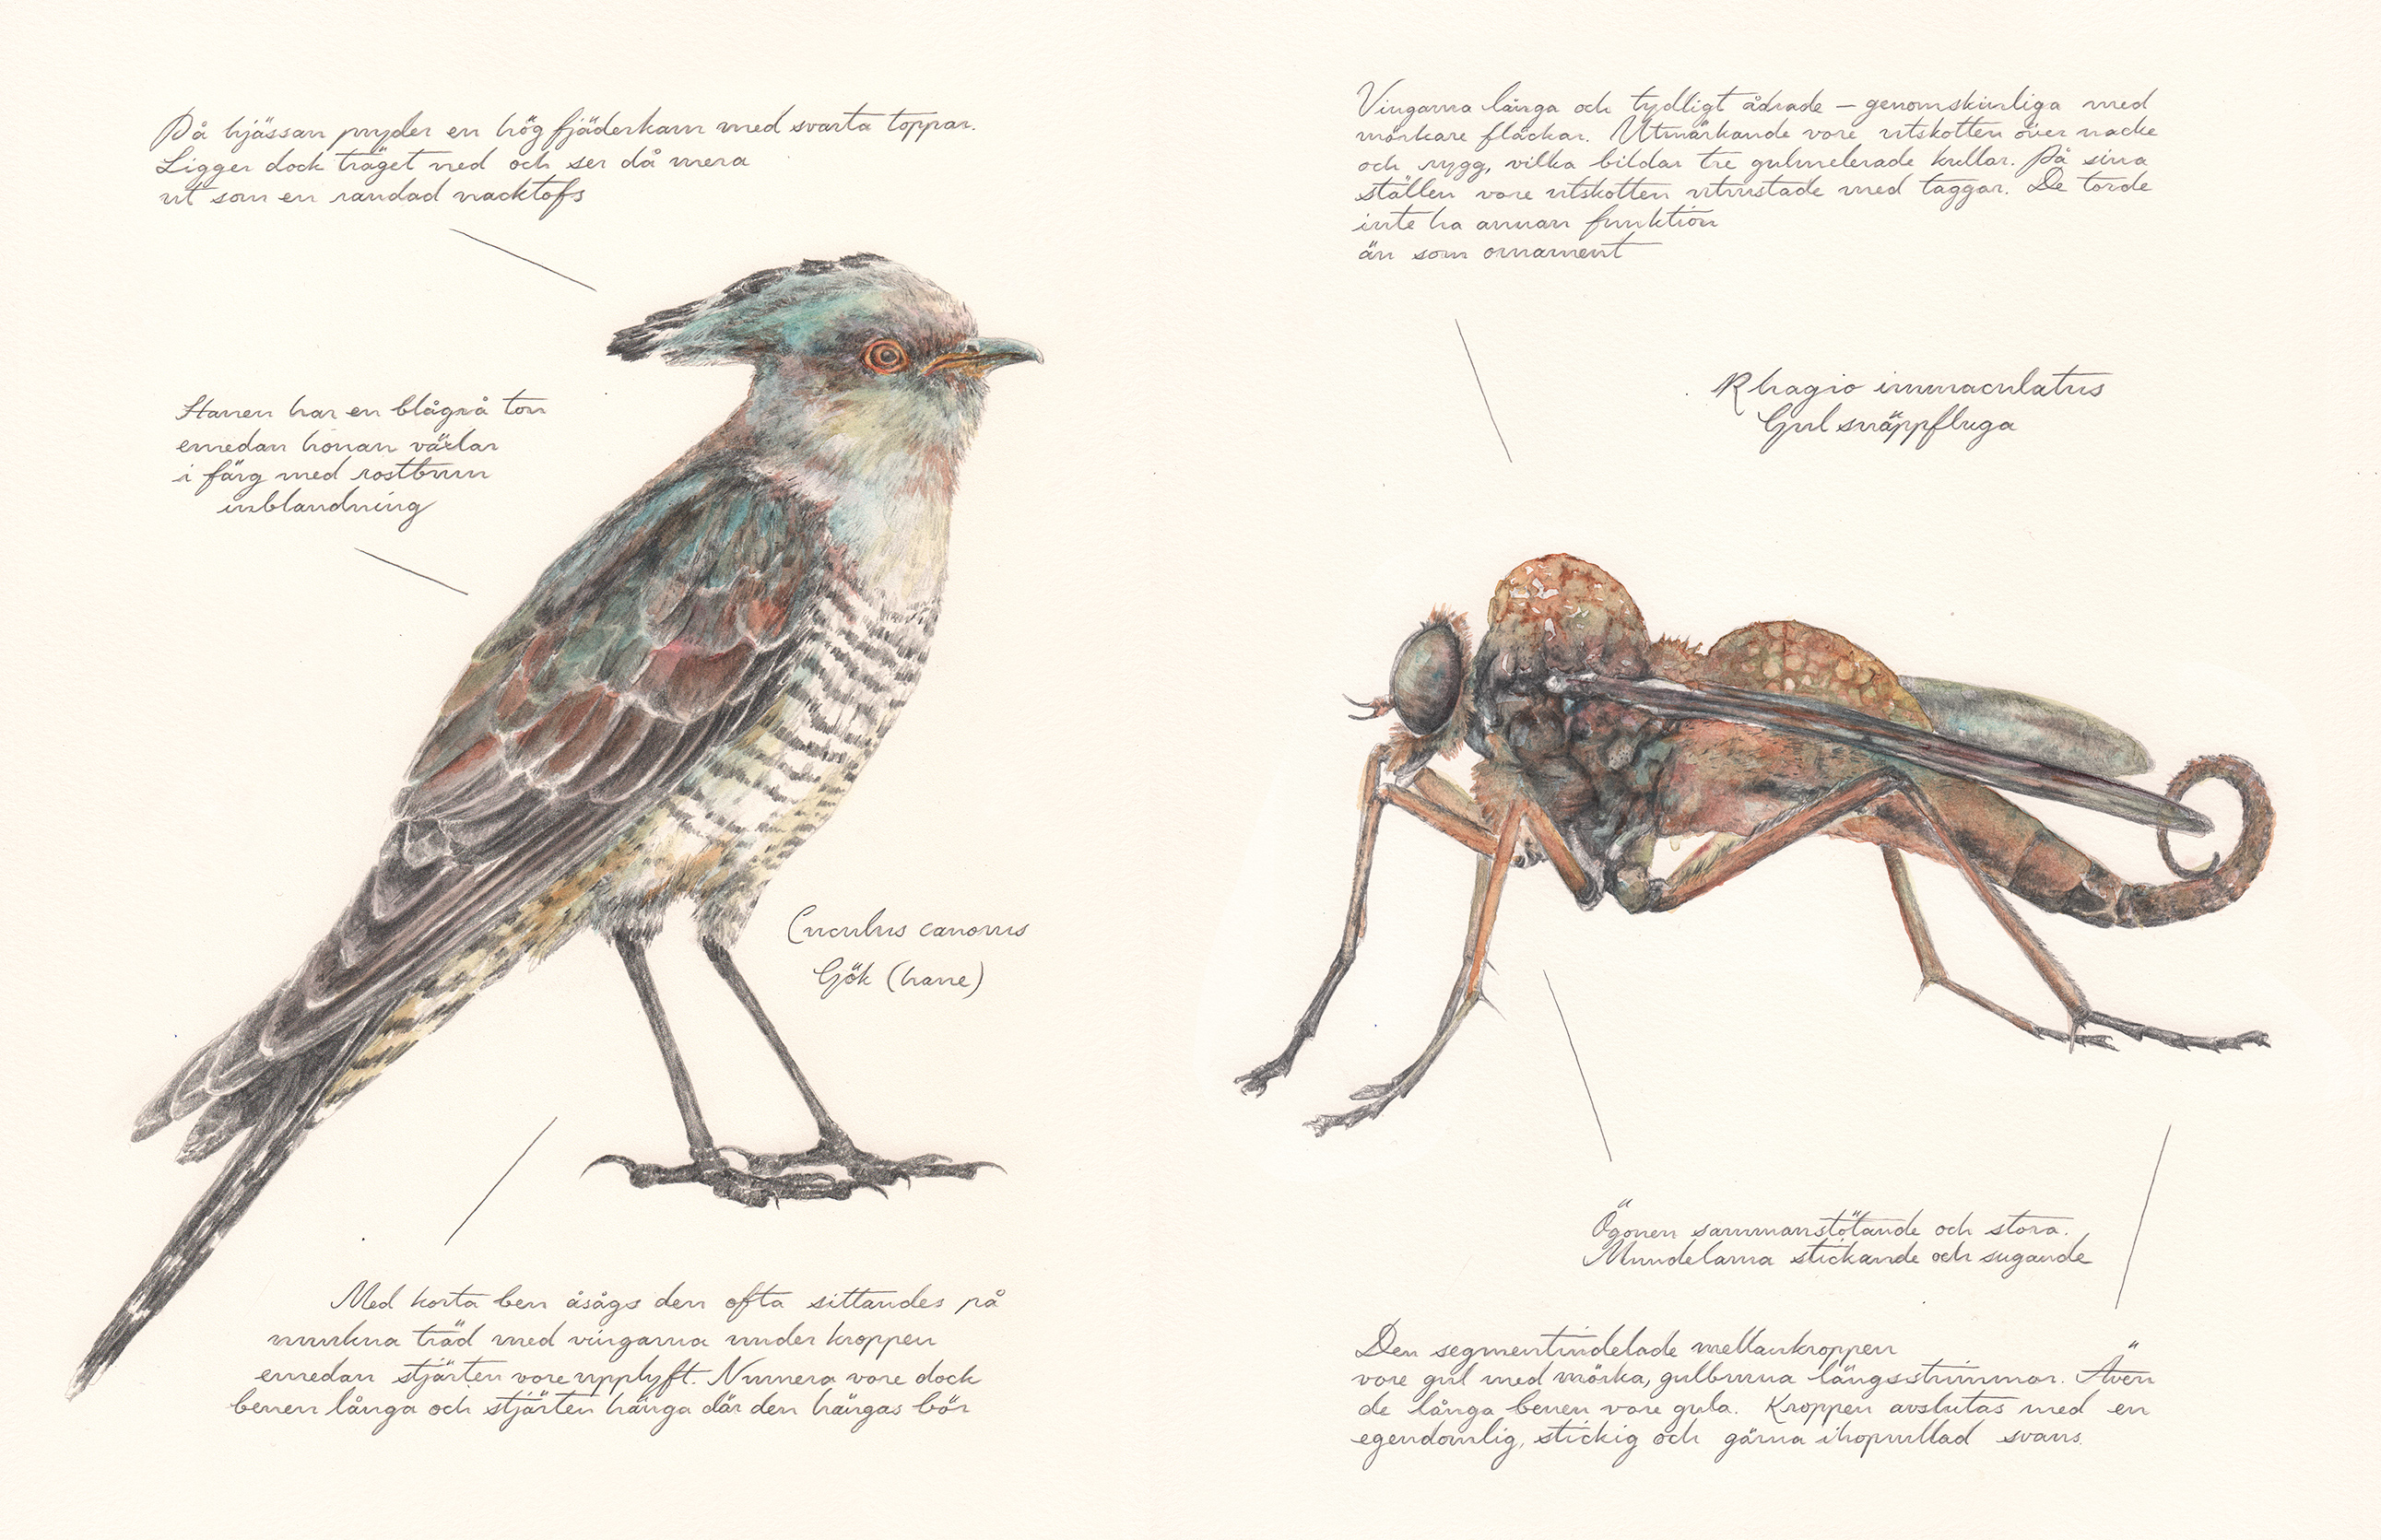 På hjässan pryder en hög fjäderkam med svarta toppar.
Ligger dock träget ned och ser då mera
ut som en randad nacktofs
Hanen har en blågrå ton
emedan honan växlar
i färg med rostbrun
inblandning
Cuculus canorus
Gök (hane)
Med korta ben åsågs den ofta sittandes på
murkna träd med vingarna under kroppen
emedan stjärten vore upplyft. Numera vore dock
benen långa och stjärten hänga där den hängas bör
Vingarna långa och tydligt ådrade – genomskinliga med
mörkare fläckar. Utmärkande vore utskotten över nacke
och rygg, vilka bildar tre gulmelerade kullar. På sina
ställen vore utskotten utrustade med taggar. De torde
inte ha annan funktion
än som ornament
Rhagio immaculatus
Gul snäppfluga
Ögonen sammanstötande och stora.
Mundelarna stickande och sugande
Den segmentindelade mellankroppen
vore gul med mörka, gulbruna längsstrimmor. Även
de långa benen vore gula. Kroppen avslutas med en
egendomlig, stickig och gärna ihoprullad svans.